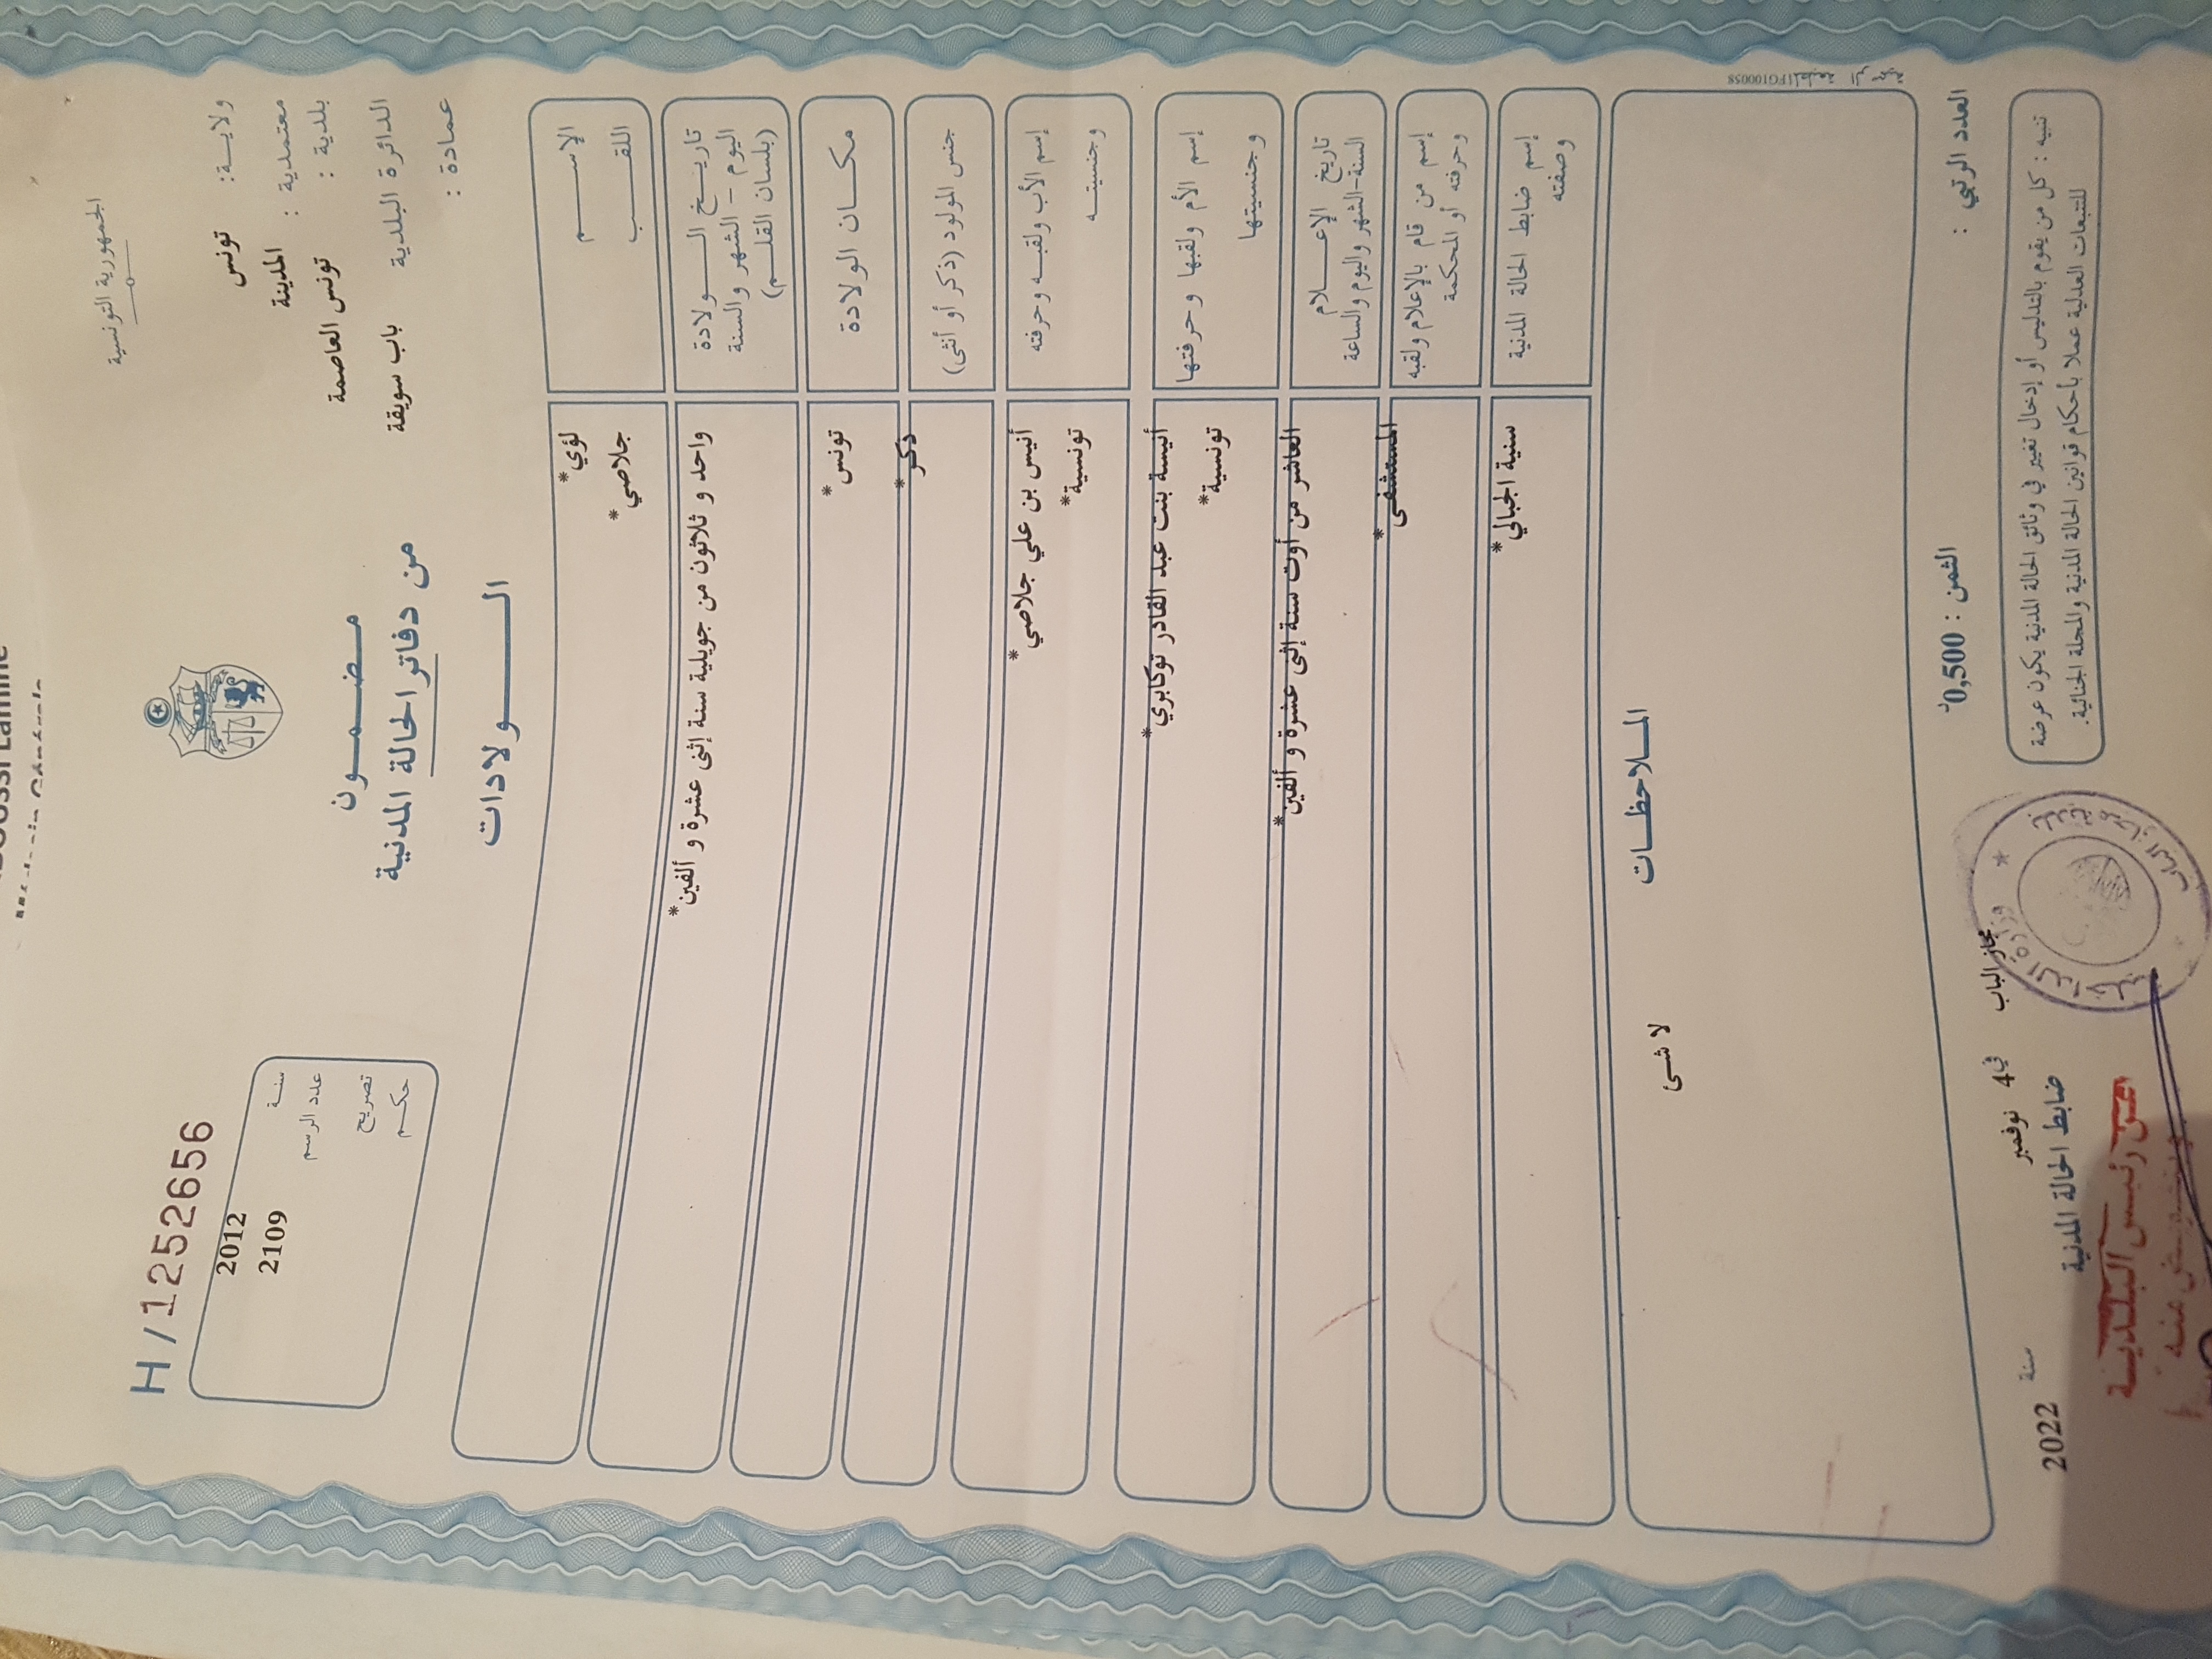 الجمهورية التونسية
ولايـــة: تونس
معتمدية : المدينة
بلدية : تونس العاصمة
الدائرة البلدية باب سويقة
عمادة :
H/1252656
سنــة 2012
عدد الرسم 2109
تصريح
حكـم
مـضـمـون
من دفاتر الحالة المدنية
الـولادات
الإســـم لؤي*
اللقـــب جلاصي*
تاريـخ الـــولادة
اليوم - الشهر والسنة
(بلسان القلـــم)
واحد و ثلاثون من جويلية سنة إثنى عشرة و ألفين*
مكـــان الولادة تونس*
جنس المولود (ذكر أو أنثى) ذكر*
إسم الأب ولقبـه وحرفته أنيس بن علي جلاصي*
وجنسيتــه تونسية*
إسم الأم ولقبها وحرفتها أنيسة بنت عبد القادر توكابري*
وجنسيتها تونسية*
تاريخ الإعـــلام
السنة-الشهر واليوم والساعة
العاشر من أوت سنة إثنى عشرة و ألفين*
إسم من قام بالإعلام ولقبه
وحرفته أو المحكمة
المستشفى*
إسم ضابط الحالة المدنية
وصفته
سنية الجبالي*
الملاحظـات
لا شئ
العدد الرتبي :
الثمن : 0,500د
مجاز الباب في 4 نوفمبر سنة 2022
ضابط الحالة المدنية
تنبيه : كل من يقوم بالتدليس أو إدخال تغيير في وثائق الحالة المدنية يكون عرضة
للتتبعات العدلية عملا بأحكام قوانين الحالة المدنية والمجلة الجنائية.
عن رئيس البلدية